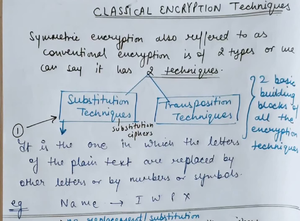 CLASSICAL ENCRYPTION Techniques
Symmetric encryption also reffered to as
conventional encryption is of 2 types or we
can say it has 2 techniques.
Substitution
Techniques
Transposition
Techniques
substitution
ciphers
2 basic
building
blocks of
all the
encryption
techniques
1
It is the one in which the letters
of the plain text are replaced by
other letters or by numbers or symbols.
eg Name → I W P X
replacement/substitution